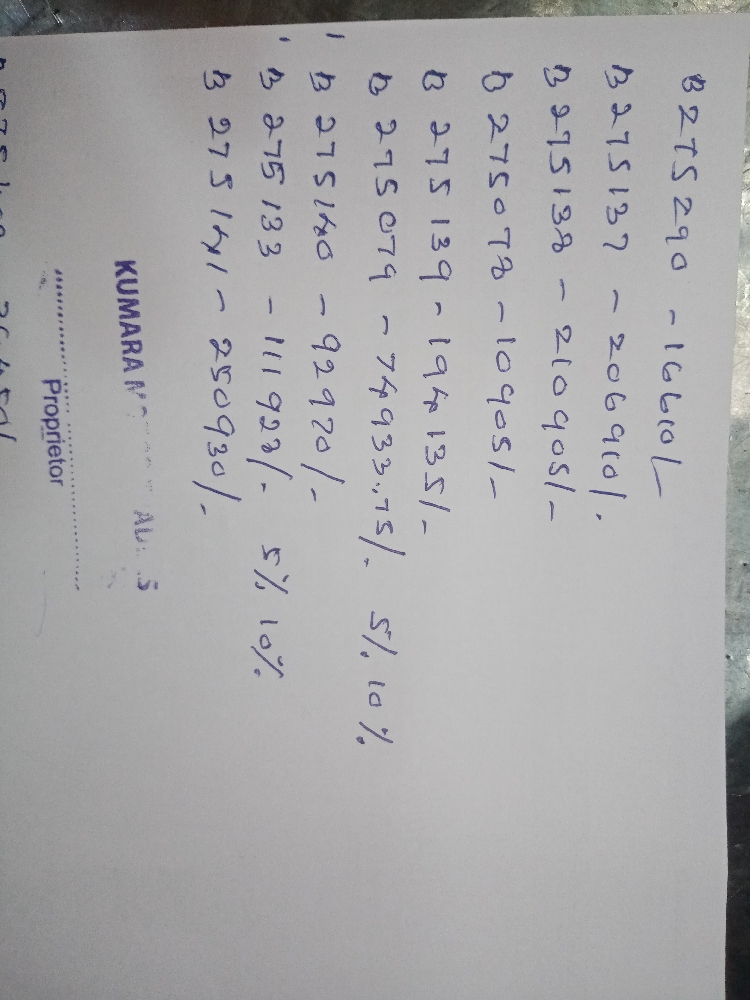 B 275290 - 16610/-
B 275137 - 206910/-
B 275138 - 210905/-
B 275078 - 10905/-
B 275139 - 194135/-
B 275079 - 74933.75/- 5% 10%
B 275140 - 92970/-
B 275133 - 111928/- 5% 10%
B 275141 - 250930/-
KUMARAN
Proprietor